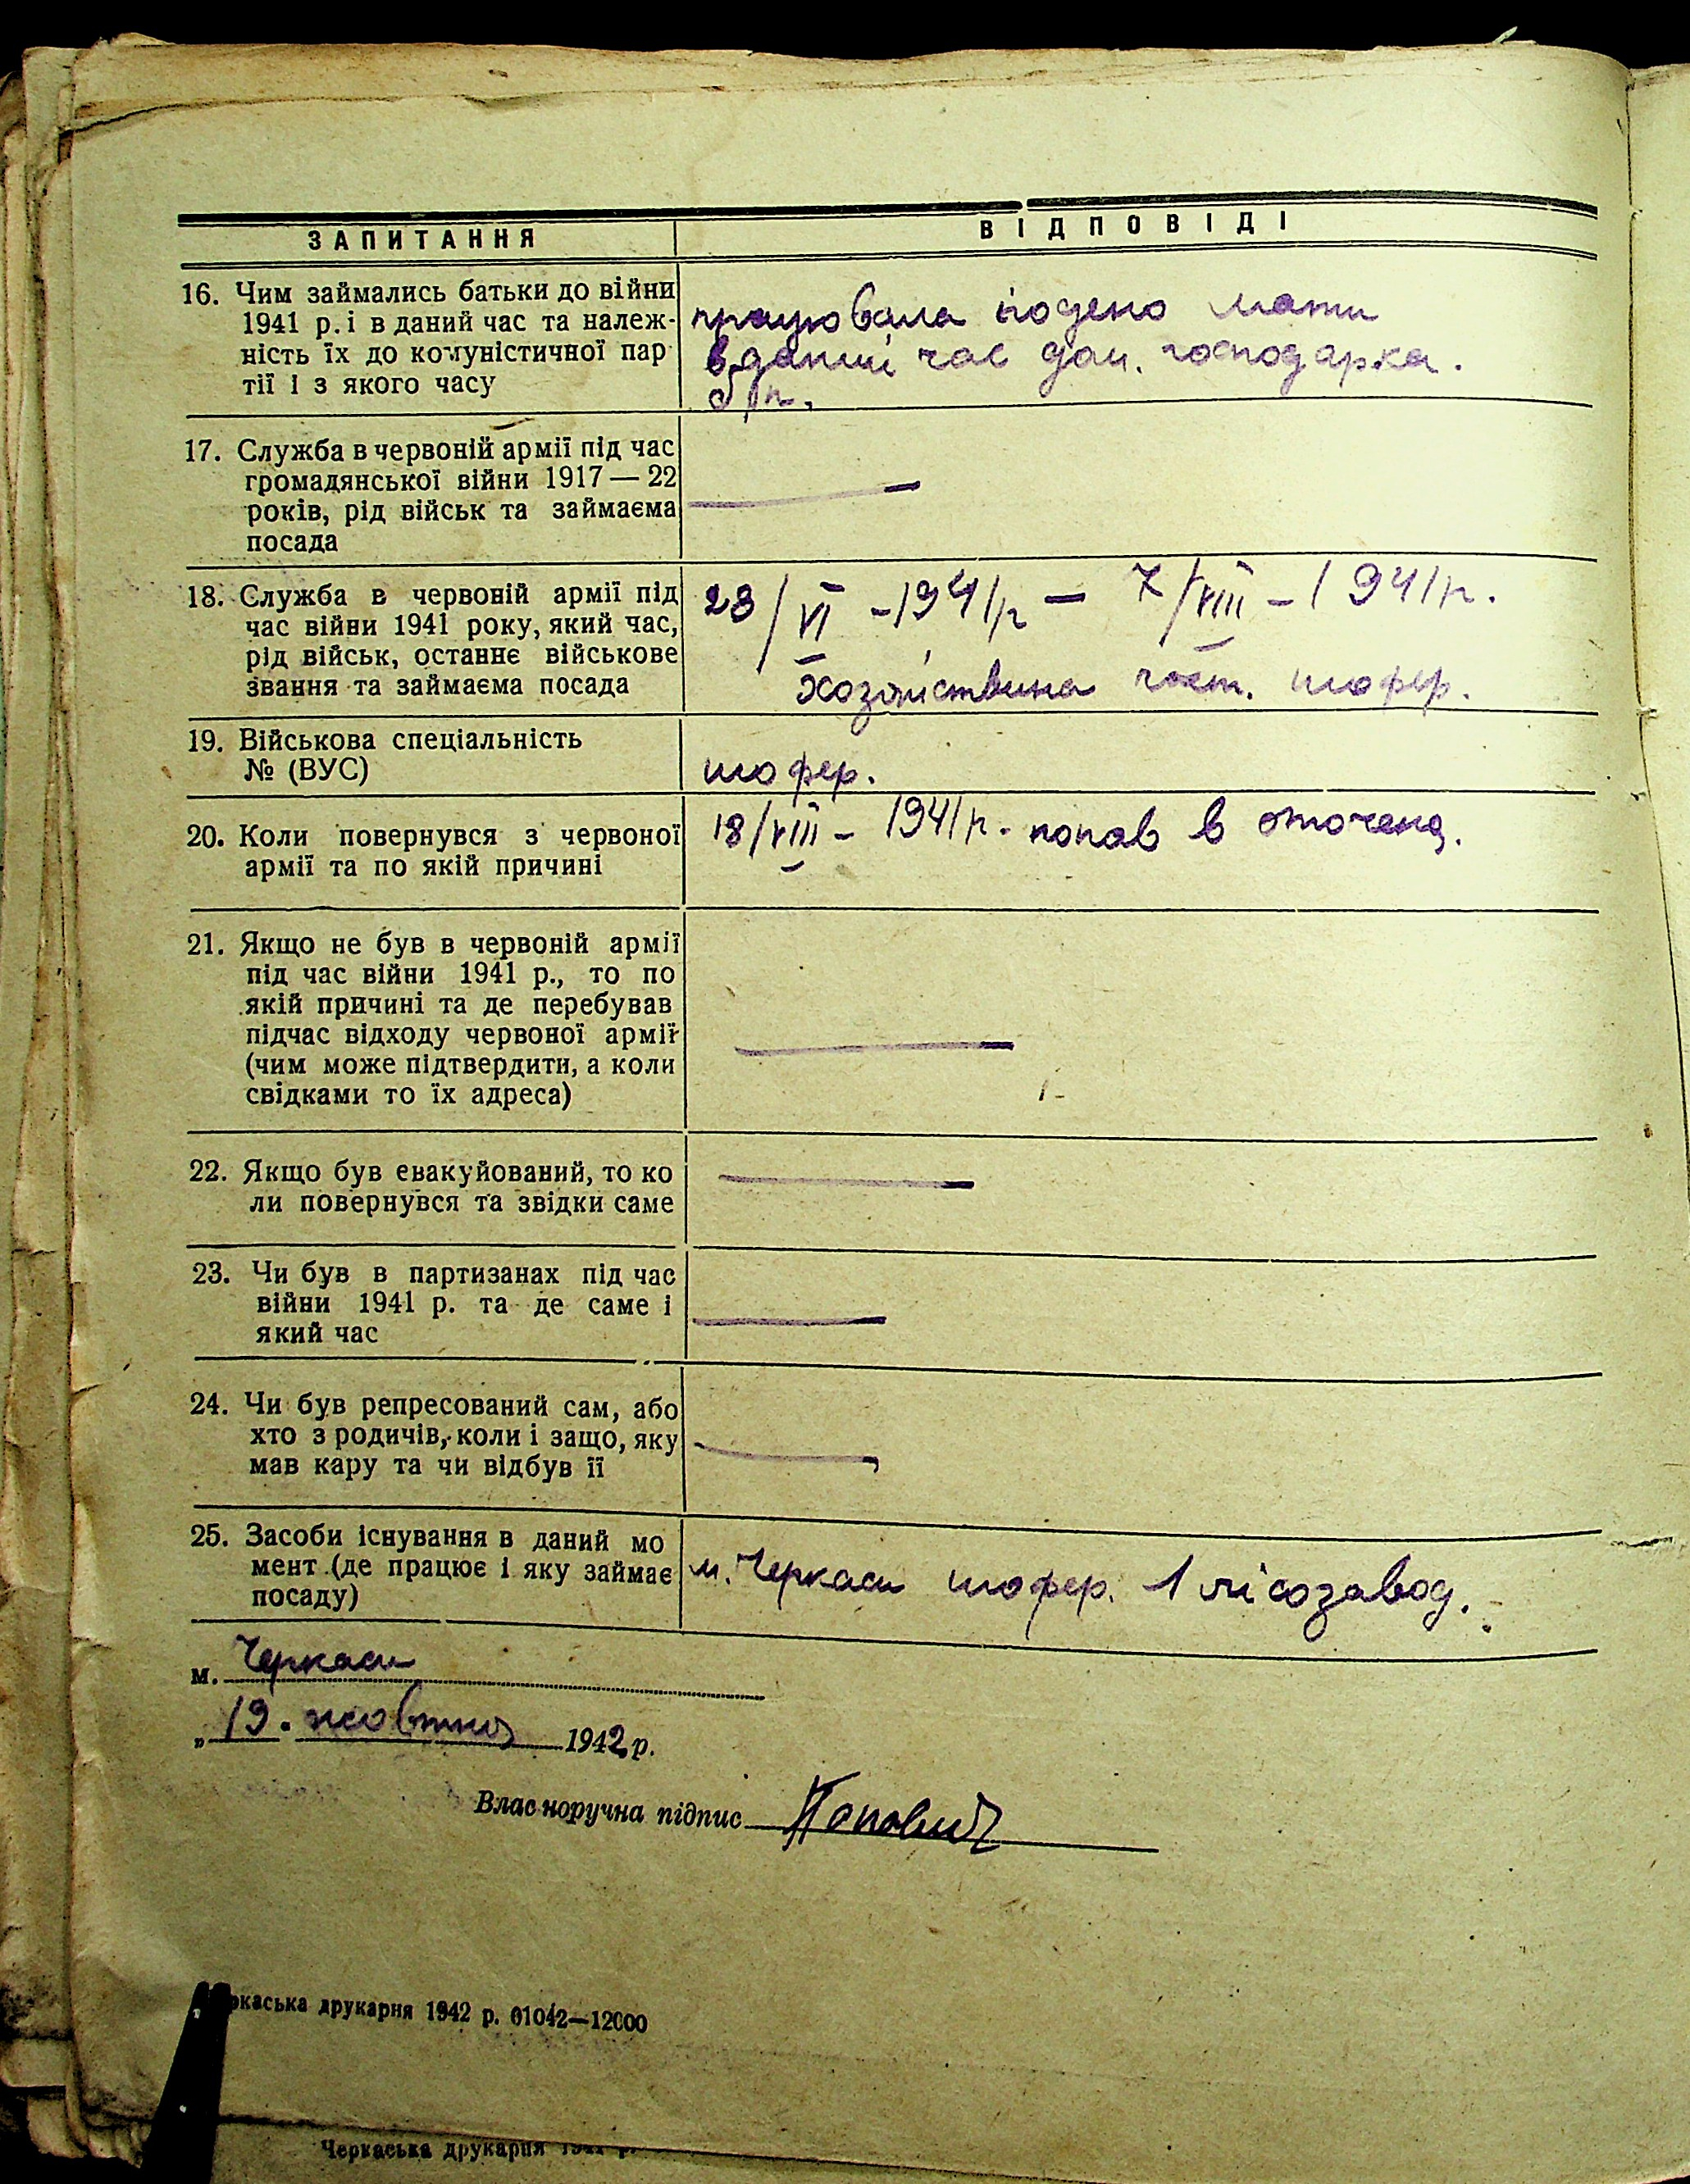 ЗАПИТАННЯ
ВІДПОВІДІ
16. Чим займались батьки до війни
1941 р. і в даний час та належ-
ність їх до комуністичної пар
тії і з якого часу
працювала поденно мати
в даний час дом. господарка.
б/п.
17. Служба в червоній армії під час
громадянської війни 1917 — 22
років, рід військ та займаєма
посада
—
18. Служба в червоній армії під
час війни 1941 року, який час,
рід військ, останнє військове
звання та займаєма посада
23/VI - 1941р — 7/VIII - 1941р.
Хозяйствина част. шофер.
19. Військова спеціальність
№ (ВУС)
шофер.
20. Коли повернувся з червоної
армії та по якій причині
18/VIII - 1941р. попав в оточеня.
21. Якщо не був в червоній армії
під час війни 1941 р., то по
якій причині та де перебував
підчас відходу червоної армії
(чим може підтвердити, а коли
свідками то їх адреса)
—
22. Якщо був евакуйований, то ко
ли повернувся та звідки саме
—
23. Чи був в партизанах під час
війни 1941 р. та де саме і
який час
—
24. Чи був репресований сам, або
хто з родичів, коли і защо, яку
мав кару та чи відбув її
—
25. Засоби існування в даний мо
мент (де працює і яку займає
посаду)
м. Черкаси шофер. 1 лісозавод.
м. Черкаси
„19. жовтня 1942 р.
Власноручна підпис Попович
ркаська друкарня 1942 р. 01042—12000
Черкаська друкарня